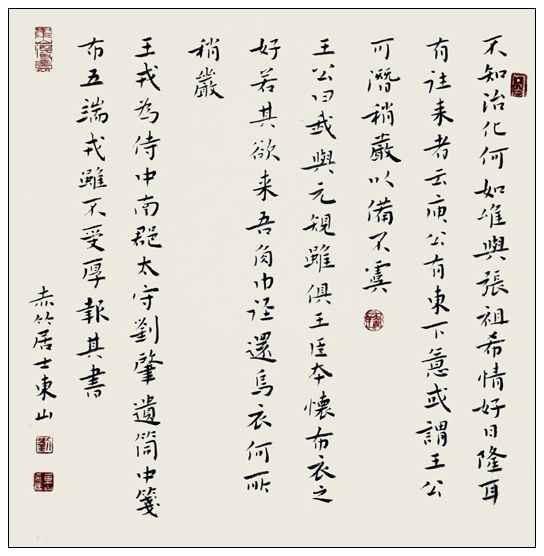 不知治化何如唯與張祖希情好日隆耳
有往来者云庾公有東下意或謂王公
可潛稍嚴以備不虞
王公曰我與元規雖俱王臣本懷布衣之
好若其欲来吾角巾徑還烏衣何所
稍嚴
王戎為侍中南郡太守劉肇遺筒中箋
布五端戎雖不受厚報其書
赤竹居士東山